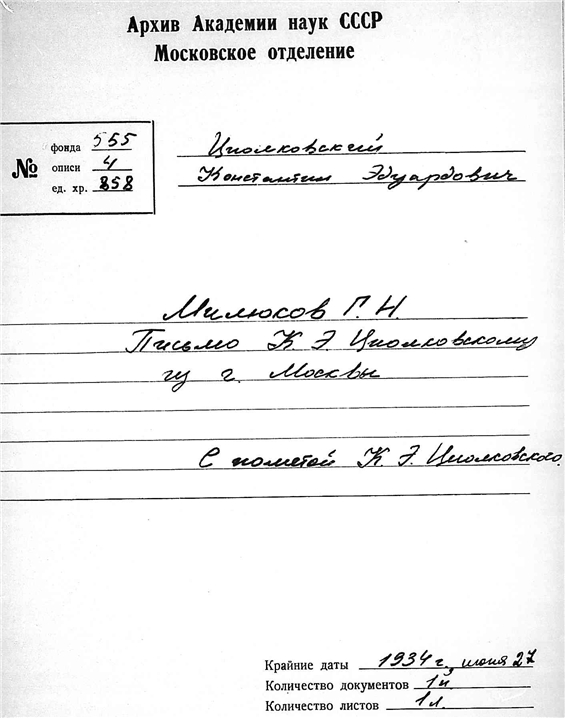 Архив Академии наук СССР
Московское отделение
№
фонда 555
описи 4
ед. хр. 858
Циолковский
Константин Эдуардович
Милюков Г. Н.
Письмо К. Э. Циолковскому
из г. Москвы
С пометой К. Э. Циолковского.
Крайние даты 1934 г., июня 27
Количество документов 1й
Количество листов 1 л.